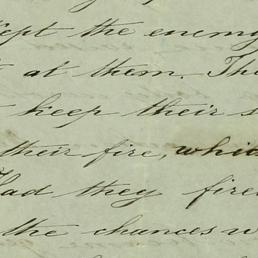 kept the enemy
at them. The
keep their s
their fire, whi
Had they fired
the chances w